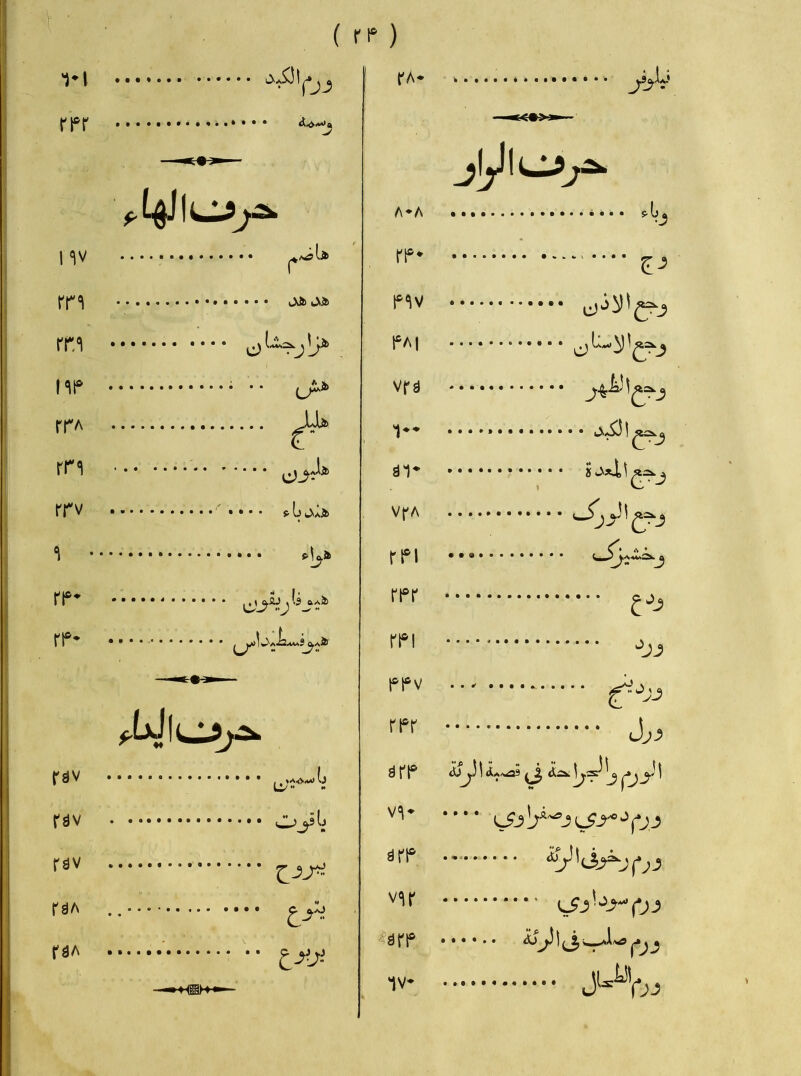 ( ٢٤ )
نيلوفر ٢٨٠
حرف الواو
وباء ٨٠٨
وج ٢٤٠
وجع الاذن ٤٩٧
وجع الاسنان ٤٨١
وجع الظهر ٧٢٥
وجع الكبد ٦٠٠
وجع المعدة ٥٦٠
وجع الورك ٧٢٨
وخشيزك ٢٤١
ودع ٢٤٢
ورد ٢٤١
وردينج ٤٤٧
ورل ٢٤٢
الورم والجراحة في قصبة الرئة ٥٢٤
ورم دموي وصفراوي ٧٩٠
ورم رخو في الرئة ٥٢٤
ورم سوداوي ٧٩٢
ورم صلب في الرئة ٥٢٤
ورم الطحال ٦٧٠
ورم الكبد ٦٠١
وسمة ٢٤٢
حرف الهاء
هاضم ١٩٧
هدهد ٢٣٩
هزارجشان ٢٣٩
هش ١٩٤
هليلج ٢٣٨
هليون ٢٣٩
هندباء ٢٣٧
هواء ٩
هيوفاريقون ٢٤٠
هيوفسطيداس ٢٤٠
حرف الياء
ياسمين ٢٥٧
ياقوت ٢٥٧
يبروح ٢٥٧
يتوع ٢٥٨
يربوع ٢٥٨